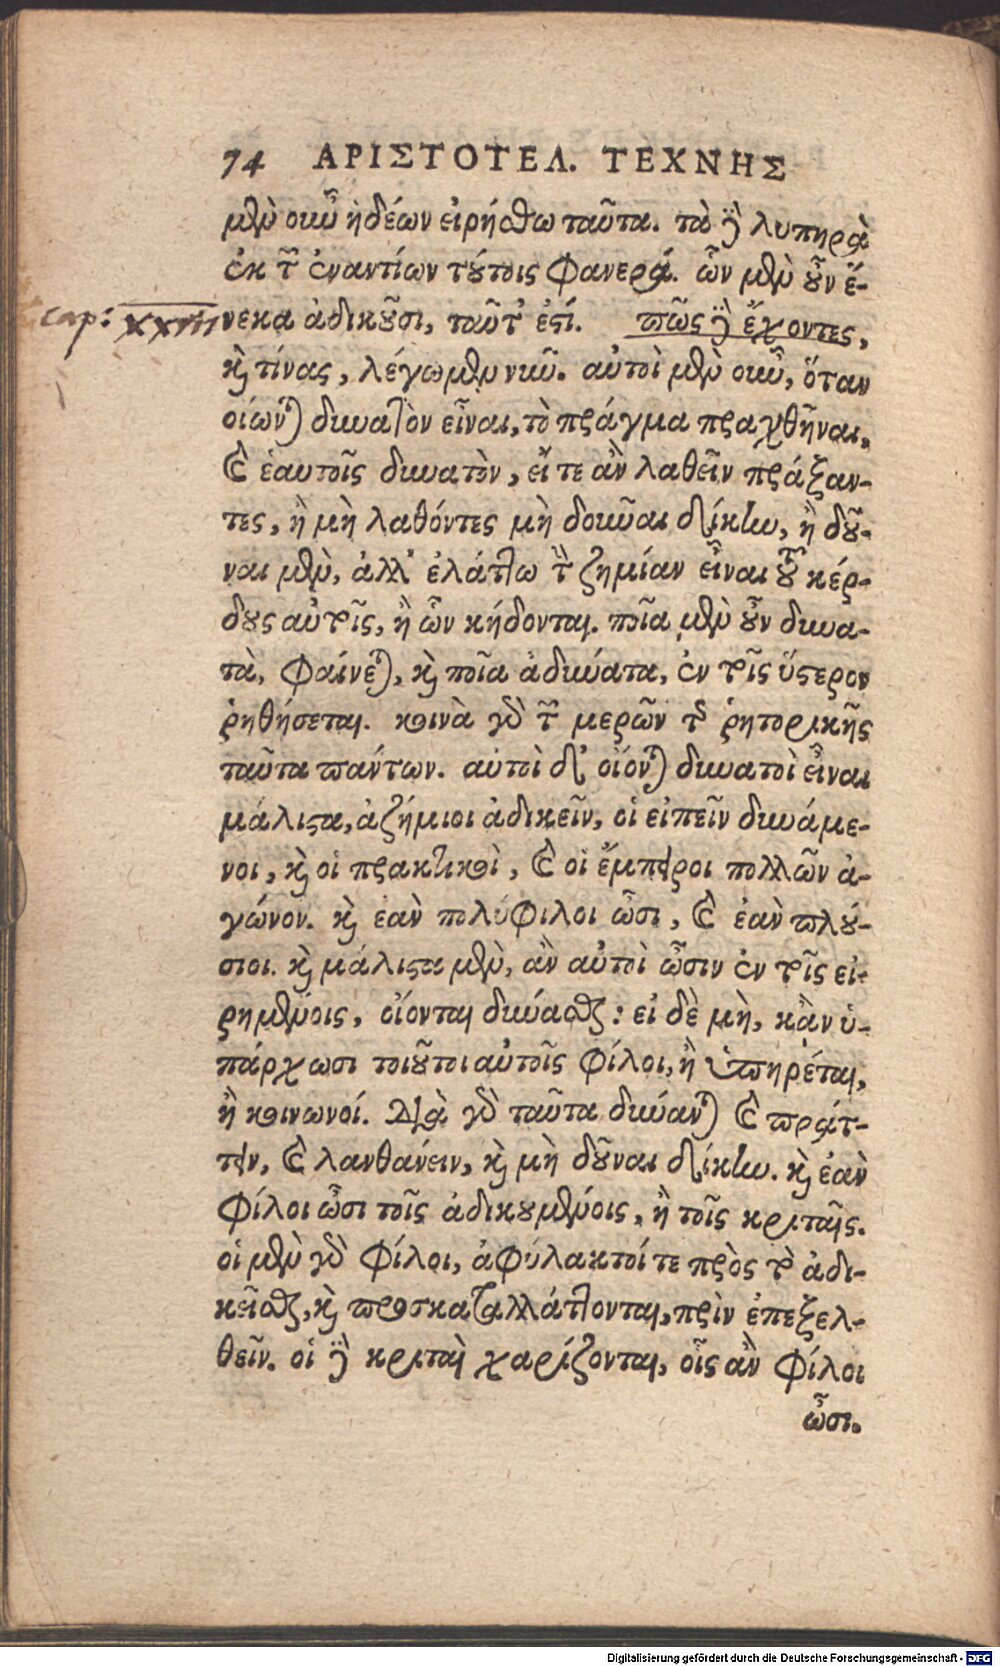 74 ΑΡΙΣΤΟΤΕΛ. ΤΕΧΝΗΣ
μὲν οὖν ἡδέων εἰρήσθω ταῦτα. τὰ δὲ λυπηρὰ
ἐκ τῶν ἐναντίων τούτοις φανερά. ὧν μὲν οὖν ἕ-
cap: XXVII νεκα ἀδικοῦσι, ταῦτ' ἐστί. πῶς δὲ ἔχοντες,
καὶ τίνας, λέγωμεν νῦν. αὐτοὶ μὲν οὖν, ὅταν
οἴωνται δυνατὸν εἶναι, τὸ πρᾶγμα πραχθῆναι,
καὶ ἑαυτοῖς δυνατὸν, εἴ τε ἂν λαθεῖν πράξαν-
τες, ἢ μὴ λαθόντες μὴ δοῦναι δίκην, ἢ δοῦ-
ναι μὲν, ἀλλ' ἐλάττω τὴν ζημίαν εἶναι τοῦ κέρ-
δους αὐτοῖς, ἢ ὧν κήδονται. ποῖα μὲν οὖν δυνα-
τὰ, φαίνεται, καὶ ποῖα ἀδύνατα, ἐν τοῖς ὕστερον
ῥηθήσεται. κοινὰ γὰρ τῶν μερῶν τῆς ῥητορικῆς
ταῦτα πάντων. αὐτοὶ δ' οἴονται δυνατοὶ εἶναι
μάλιστα, ἀζήμιοι ἀδικεῖν, οἱ εἰπεῖν δυνάμε-
νοι, καὶ οἱ πρακτικοὶ, καὶ οἱ ἔμπειροι πολλῶν ἀ-
γώνον. καὶ ἐὰν πολύφιλοι ὦσι, καὶ ἐὰν πλού-
σιοι. καὶ μάλιστα μὲν, ἂν αὐτοὶ ὦσιν ἐν τοῖς εἰ-
ρημένοις, οἴονται δύνασθαι: εἰ δὲ μὴ, κἂν ὑ-
πάρχωσι τοιοῦτοι αὐτοῖς φίλοι, ἢ ὑπηρέται,
ἢ κοινωνοί. Διὰ γὰρ ταῦτα δύνανται καὶ πράτ-
τειν, καὶ λανθάνειν, καὶ μὴ δοῦναι δίκην. καὶ ἐὰν
φίλοι ὦσι τοῖς ἀδικουμένοις, ἢ τοῖς κριταῖς.
οἱ μὲν γὰρ φίλοι, ἀφύλακτοί τε πρὸς τὸ ἀδι-
κεῖσθαι, καὶ προσκαταλλάττονται, πρὶν ἐπεξελ-
θεῖν. οἱ δὲ κριταὶ χαρίζονται, οἷς ἂν φίλοι
ὦσι.
Digitalisierung gefördert durch die Deutsche Forschungsgemeinschaft - DFG